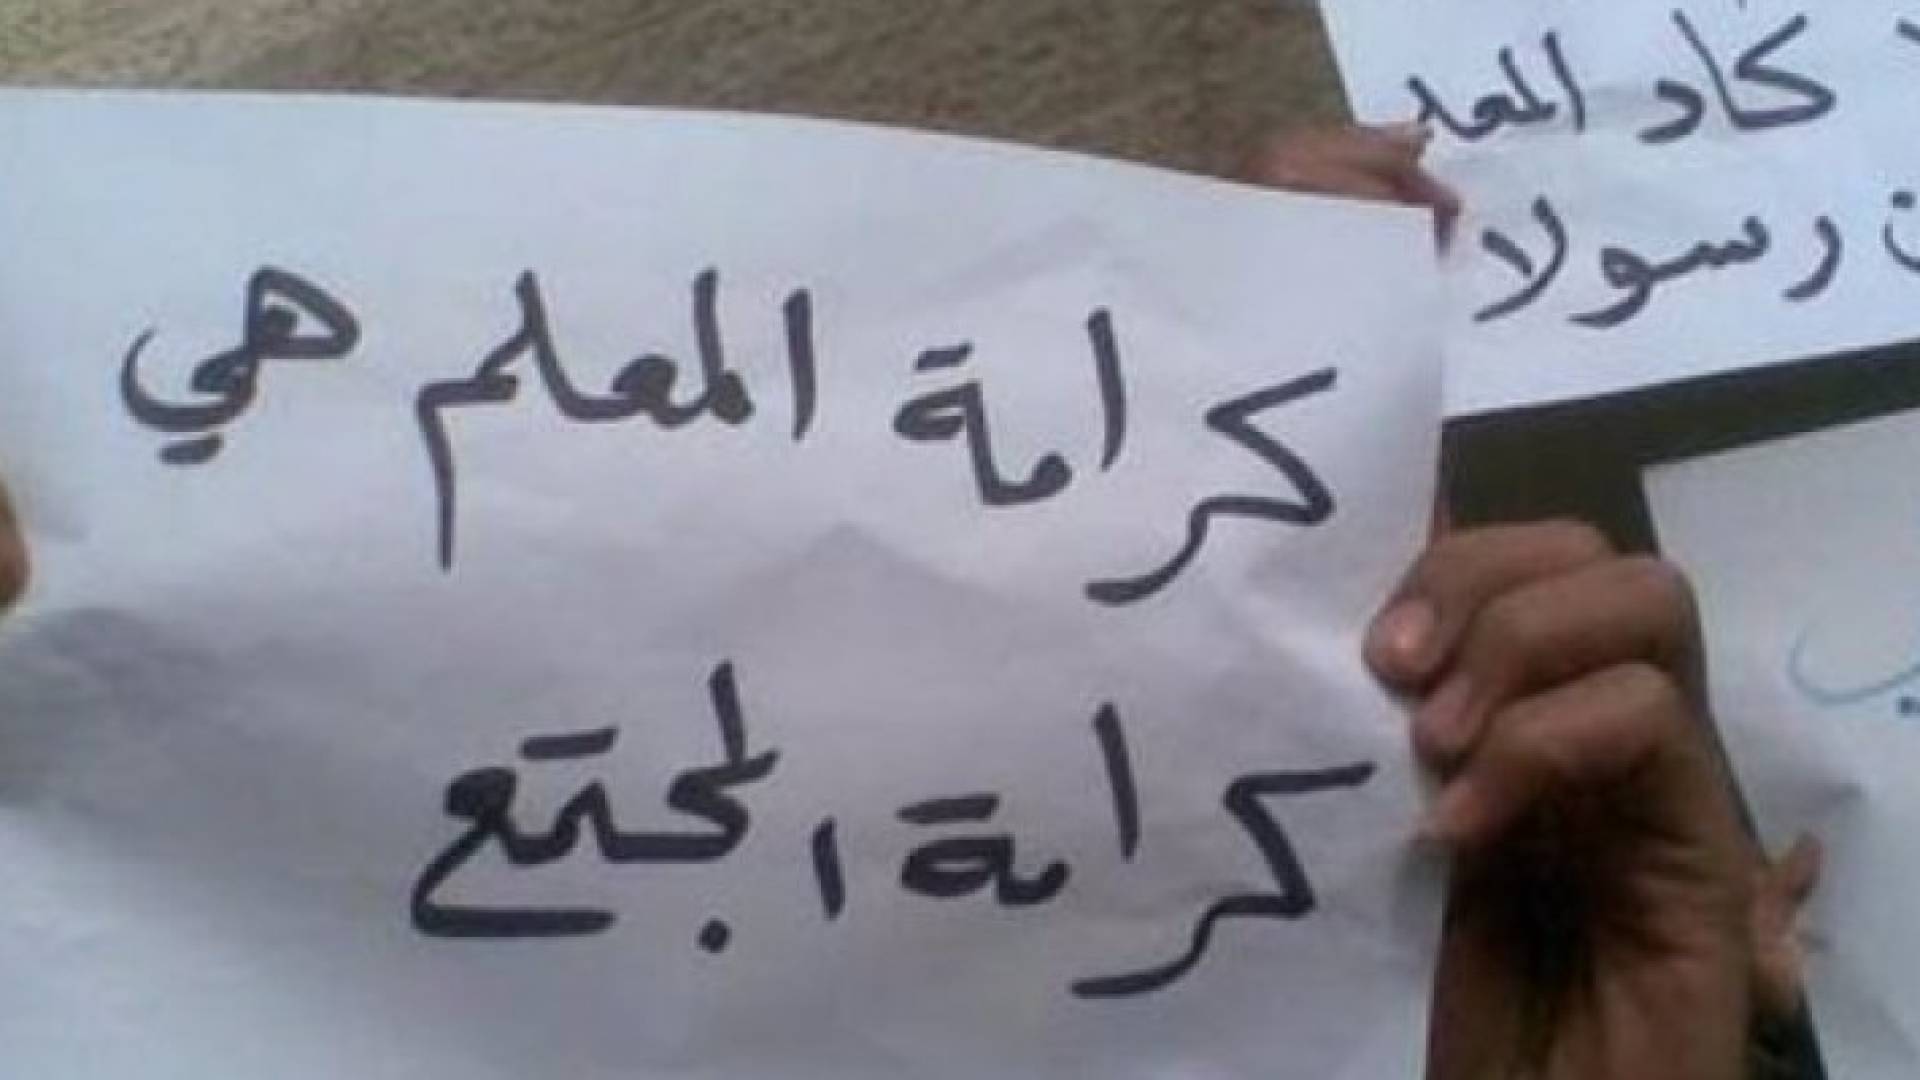 كرامة المعلم هي
كرامة المجتمع
كاد المعلـ
رسولا